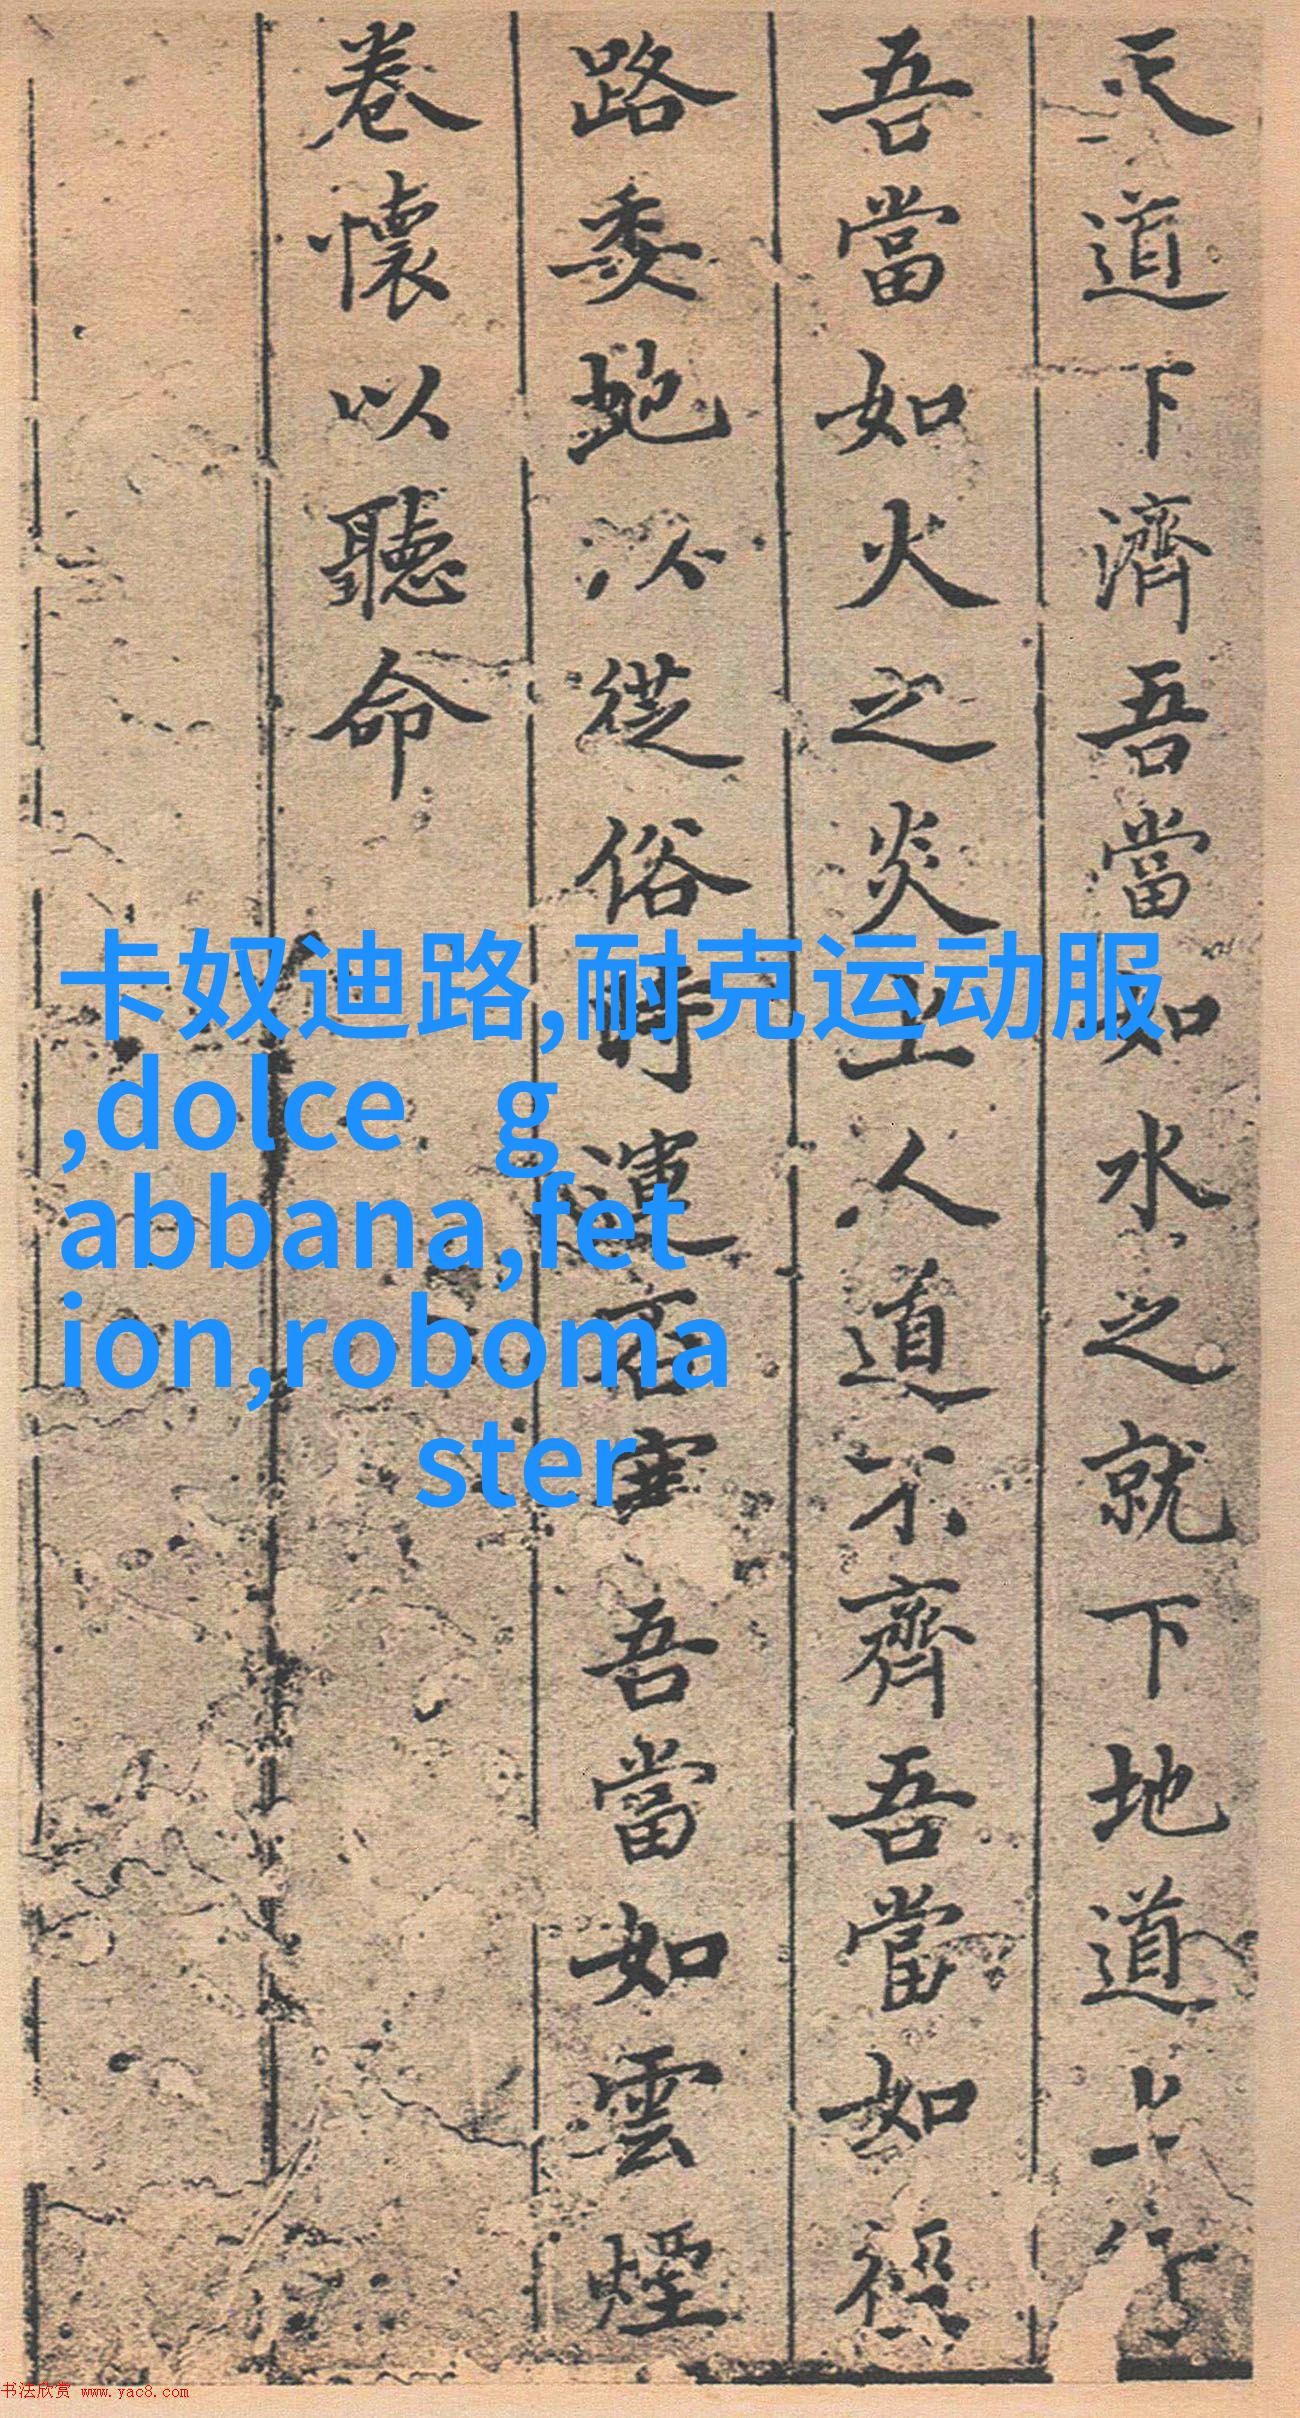 天道下濟吾當如水之就下地道上行
吾當如火之炎上人道不齊吾當如徑
路委虵以從俗時運否塞吾當如雲煙
卷懷以聽命
卡奴迪路,耐克运动服
,dolce g
abbana,fet
ion,roboma
ster
书法欣赏 www.yac8.com